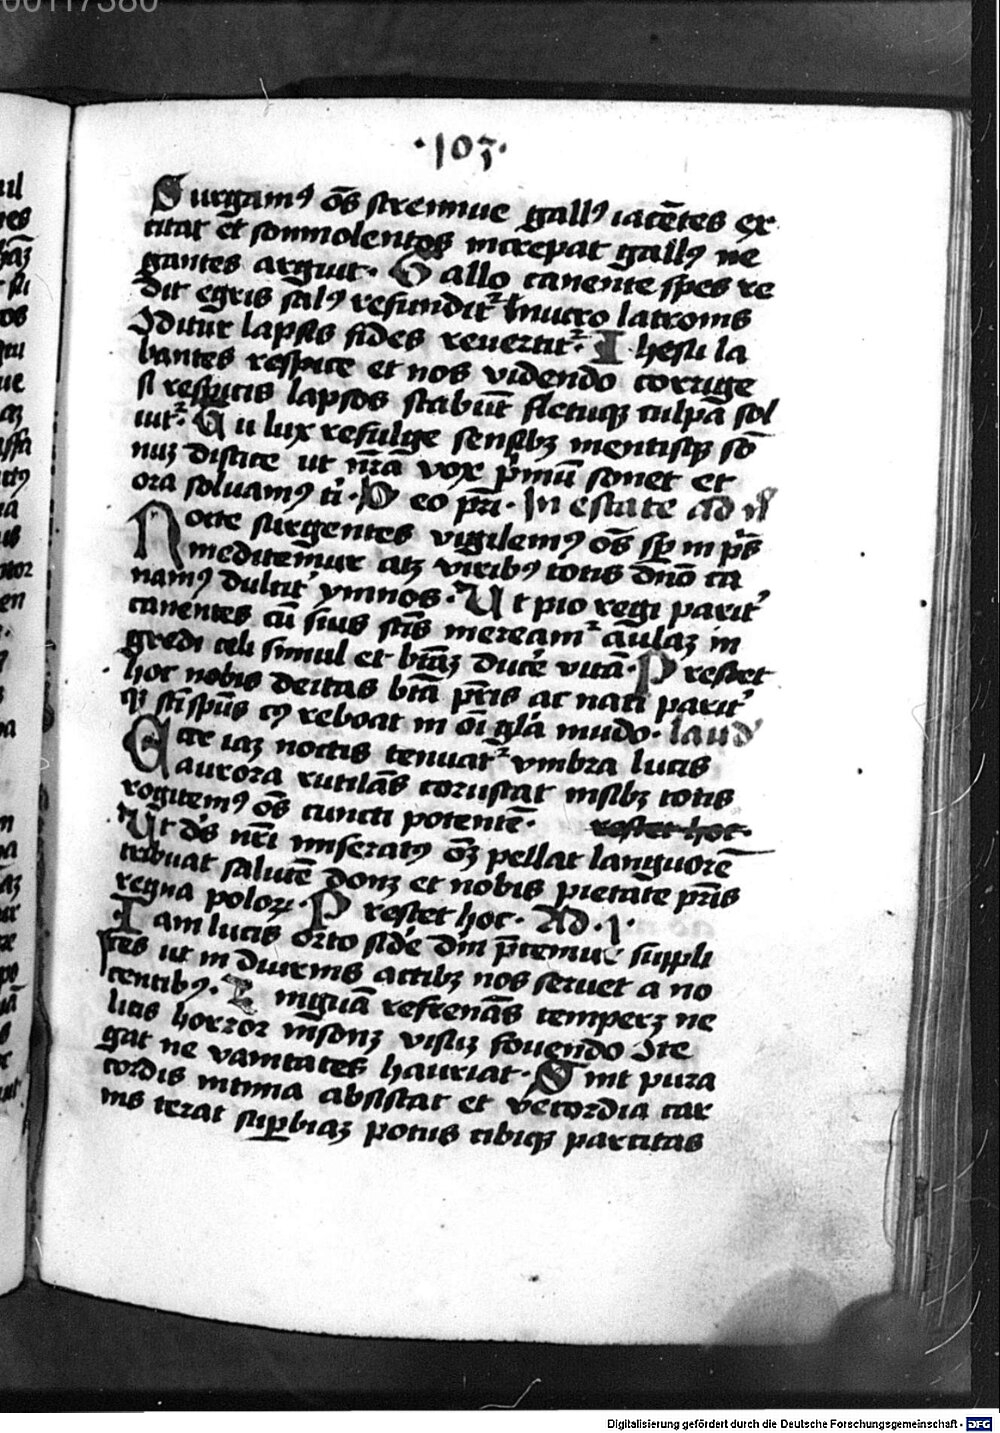 00117380
·103·
Surgamꝰ oēs strennue gallꝰ iacētes ex
citat et sommolentos increpat gallꝰ ne
gantes arguit· Gallo canente spes re
dit egris salꝰ refundit᷑ mucro latronis
Iditur lapsis fides reuertit᷑· Ihesu la
bantes respice et nos videndo corrige
si respicis lapsos stabūt fletuqꝫ culpā sol
uit᷑· Tu lux refulge sensibꝫ mentisqꝫ sō
nuꝫ discute ut nr̄a vox p̄mū sonet et
ora soluamꝰ ti· Deo pr̄i· In estate ad
Nocte surgentes vigilemꝰ oēs sp̄ in p̄s
meditemur atqꝫ viribꝰ totis dn̄o ca
namꝰ dulcit᷑ ymnos· Ut pio regi parit᷑
canentes cū suis sc̄is mereamr᷑ aulaꝫ in
gredi celi simul et bt̄aꝫ ducē vitā· Prestet
hoc nobis deitas bt̄a pr̄is ac nati parit᷑
qꝫ sc̄i sp̄us cꝰ reboat in oī gl̄a mūdo· laud
Ecce iaꝫ noctis tenuat᷑ vmbra lucis
aurora rutilās coruscat nisibꝫ totis
rogitemꝰ oēs cuncti potentē· restet hoc·
Ut ds̄ nr̄i miseratꝰ oēꝫ pellat languorē
tribuat salutē donꝫ et nobis pietate pr̄is
regna poloꝝ· Prestet hoc· Ad·1·
Iam lucis orto sidē dm̄ p̄cemur suppli
ces ut in diurnis actibꝫ nos seruet a no
centibꝰ· Linguā refrenās temperꝫ ne
litis horror insonꝫ visuꝫ fouendo 9te
gat ne vanitates hauriat· Sint pura
cordis intima absistat et vecordia car
nis terat supbiaꝫ potus cibiqꝫ parcitas
Digitalisierung gefördert durch die Deutsche Forschungsgemeinschaft - DFG